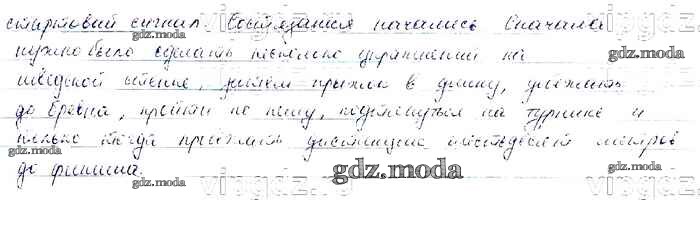 стартовый сигнал. Состязания начались Сначала
нужно было сделать несколько упражнений на
шведской стенке, затем прыжки в длину,
до бревна, пройти по нему, подтянуться на турнике и
только тогда дистанцию метров
до финиша.
gdz.moda
gdz.moda
gdz.moda
gdz.moda
gdz.moda
gdz.moda
gdz.moda